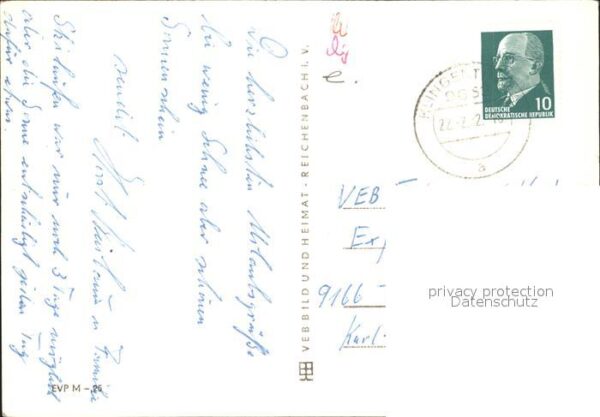 Die herzlichsten Urlaubsgrüße
bei wenig Schnee aber schönen
Sonnenschein
sendet
Horst u Familie
Ski laufen war nur noch 3 Tage möglich
aber die Sonne entschädigt jeden Tag
dafür etwas.
EVP M – 25
VEB BILD UND HEIMAT · REICHENBACH I. V.
KLINGENT
22.-2.
a
10
DEUTSCHE
DEMOKRATISCHE REPUBLIK
VEB
Ex
9166
Karl
privacy protection
Datenschutz